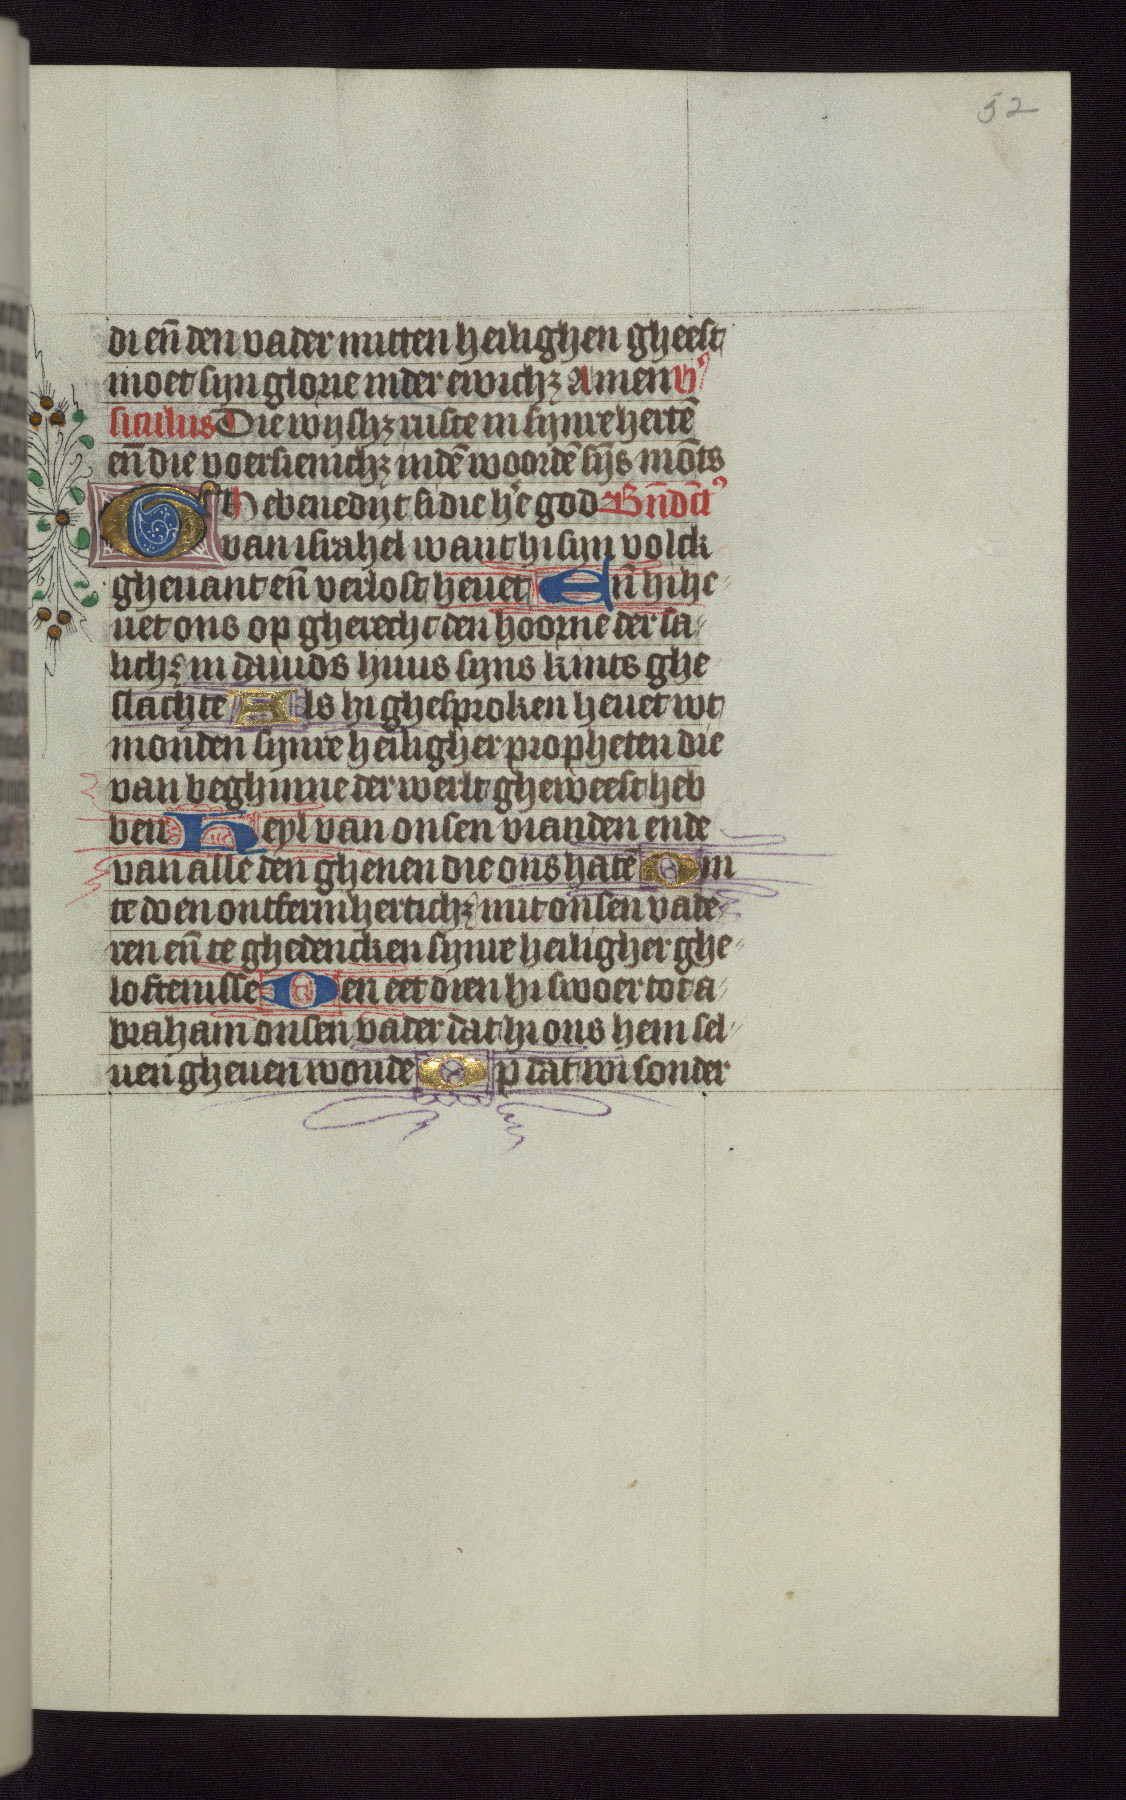 52
di en̄ den vader mitten heilighen gheest
moet sijn glorie inder ewichꝫ Amen Vꝰ
siculus Die wijshꝫ ruste in sijnre hertē
en̄ die voersienichꝫ indē woordē sijs mōts
Ghebenedijt si die hr̄e god Bn̄dc̄tꝰ
van israhel want hi sijn volck
gheuant en̄ verlost heuet En̄ hi he
uet ons op gherecht den hoorne der sa
lichꝫ in dauids huus sijns kints ghe
slachte Als hi ghesproken heuet wt
monden sijnre heiligher propheten die
van beghinne der werlt gheweest heb
ben Heyl van onsen vianden ende
van alle den ghenen die ons hatē Om
te doen ontfermherticHꝫ mit onsen vade
ren en̄ te ghedencken sijnre heiligher ghe
loftenisse Den eet dien hi swoer tot a
braham onsen vader dat hi ons hem sel
uen gheuen woude Op dat wi sonder